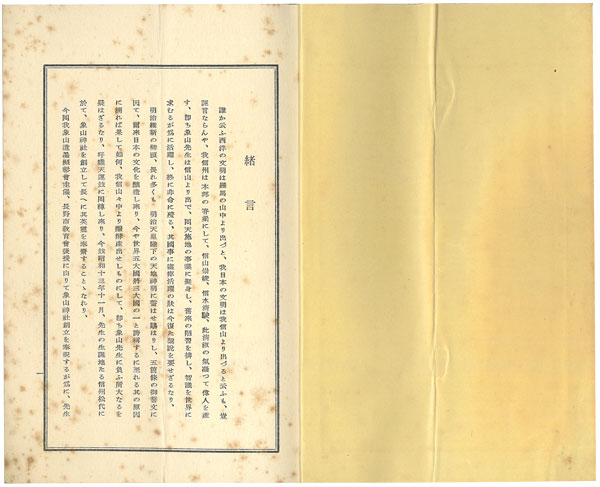 緒言
誰か云ふ西洋の文明は羅馬の山中より出づと、我日本の文明は我信山より出づると云ふも、豈
誣言ならんや、我信州は本邦の脊梁にして、信山崇峻、信水清駛、此清淑の気凝つて偉人を産
す、即ち象山先生は信山より出で、開天拓地の事業に挺身し、旧来の陋習を排し、智識を世界に
求むるが為に活躍し、終に非命に殪る、其国事に
明治維新の初頭、畏れ多くも 明治天皇陛下の天地神明に誓はせ賜はりし、五箇條の御誓文に
因て、爾来日本の文化を醸造し来り、今や世界五大国将三大国の一と誇称するに至れる其の原因
に溯れば果して如何、我信山々中より醗酵産出せしものにして、即ち象山先生に負ふ所大なるを
疑はざるなり、時職天運茲に回転し来り、今茲昭和十三年十一月、先生の生誕地たる信州松代に
於て、象山神社を創立して長へに其英霊を奉斎することゝなれり、
今回我象山遺墨顕彰会主催、長野市教育会後援に由りて象山神社創立を奉祝するが為に、先生
一